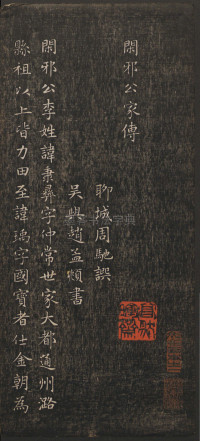 閑邪公家傳
聊城周馳譔
吳興趙孟頫書
閑邪公李姓諱秉彝字仲常世家大都通州潞
縣祖以上皆力田至諱瑀字國寶者仕金朝為